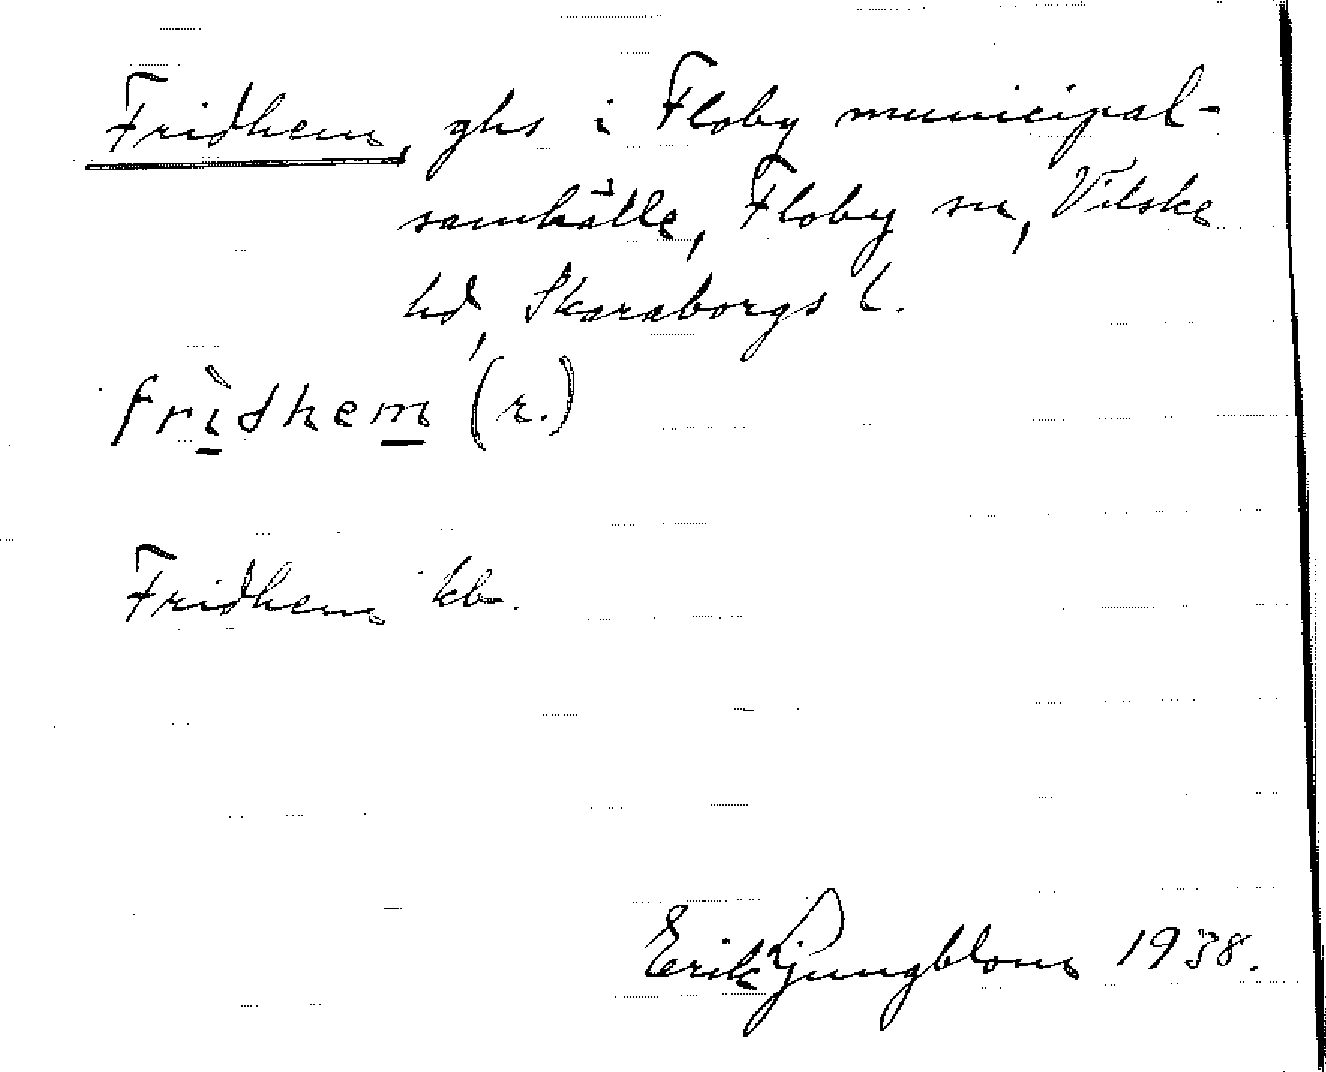 Fridhem, ghs i Floby municipal-
samhälle, Floby sn, Vilske
hd, Skaraborgs l.
frì̠dhem̠ (r.)
Fridhem kb.
Erik Ljungblom 1938.